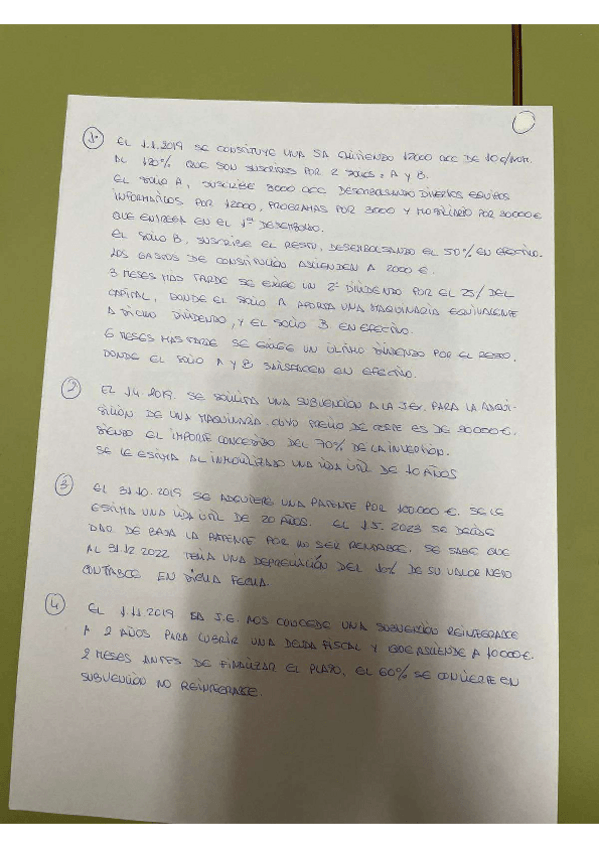 1º EL 1.1.2019 SE CONSTITUYE UNA SA EMITIENDO 12000 ACC DE 10€/NOM.
AL 120% QUE SON SUSCRITAS POR 2 SOCIOS: A Y B.
EL SOCIO A, SUSCRIBE 3000 ACC DESEMBOLSANDO DIVERSOS EQUIPOS
INFORMATICOS POR 12000, PROGRAMAS POR 3000 Y MOBILIARIO POR €
QUE ENTREGA EN EL 1er DESEMBOLSO.
EL SOCIO B, SUSCRIBE EL RESTO, DESEMBOLSANDO EL 50% EN EFECTIVO.
LOS GASTOS DE CONSTITUCIÓN ASCIENDEN A 2000 €.
3 MESES MAS TARDE SE EXIGE UN 2º DIVIDENDO POR EL 25% DEL
CAPITAL, DONDE EL SOCIO A APORTA UNA MAQUINARIA EQUIVALENTE
A DICHO DIVIDENDO, Y EL SOCIO B EN EFECTIVO.
6 MESES MAS TARDE SE EXIGE UN ULTIMO DIVIDENDO POR EL RESTO,
DONDE EL SOCIO A Y B SATISFACEN EN EFECTIVO.
2 EL 1.4.2019. SE SOLICITA UNA SUBVENCION A LA J.EX. PARA LA ADQUI-
SICIÓN DE UNA MAQUINARIA CUYO PRECIO DE COSTE ES DE 90000€.
SIENDO EL IMPORTE CONCEDIDO DEL 70% DE LA INVERSIÓN.
SE LE ESTIMA AL INMOVILIZADO UNA VIDA ÚTIL DE 10 AÑOS
3 EL 31.10.2019 SE ADQUIERE UNA PATENTE POR 100.000 €. SE LE
ESTIMA UNA VIDA ÚTIL DE 20 AÑOS. EL 1.5.2023 SE DECIDE
DAR DE BAJA LA PATENTE POR NO SER RENTABLE. SE SABE QUE
AL 31.12.2022 TENIA UNA DEPRECIACIÓN DEL 10% DE SU VALOR NETO
CONTABLE EN DICHA FECHA.
4 EL 1.11.2019 LA J.E. NOS CONCEDE UNA SUBVENCIÓN REINTEGRABLE
A 2 AÑOS PARA CUBRIR UNA DEUDA FISCAL Y QUE ASCIENDE A 10000€.
2 MESES ANTES DE FINALIZAR EL PLAZO, EL 60% SE CONVIERTE EN
SUBVENCIÓN NO REINTEGRABLE.